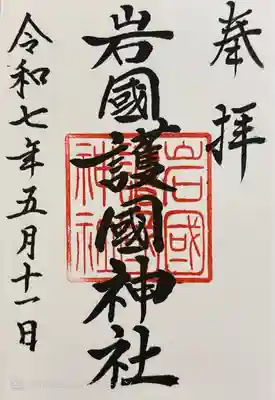 奉拝
岩國護國神社
岩國
護國
神社
令和七年五月十一日